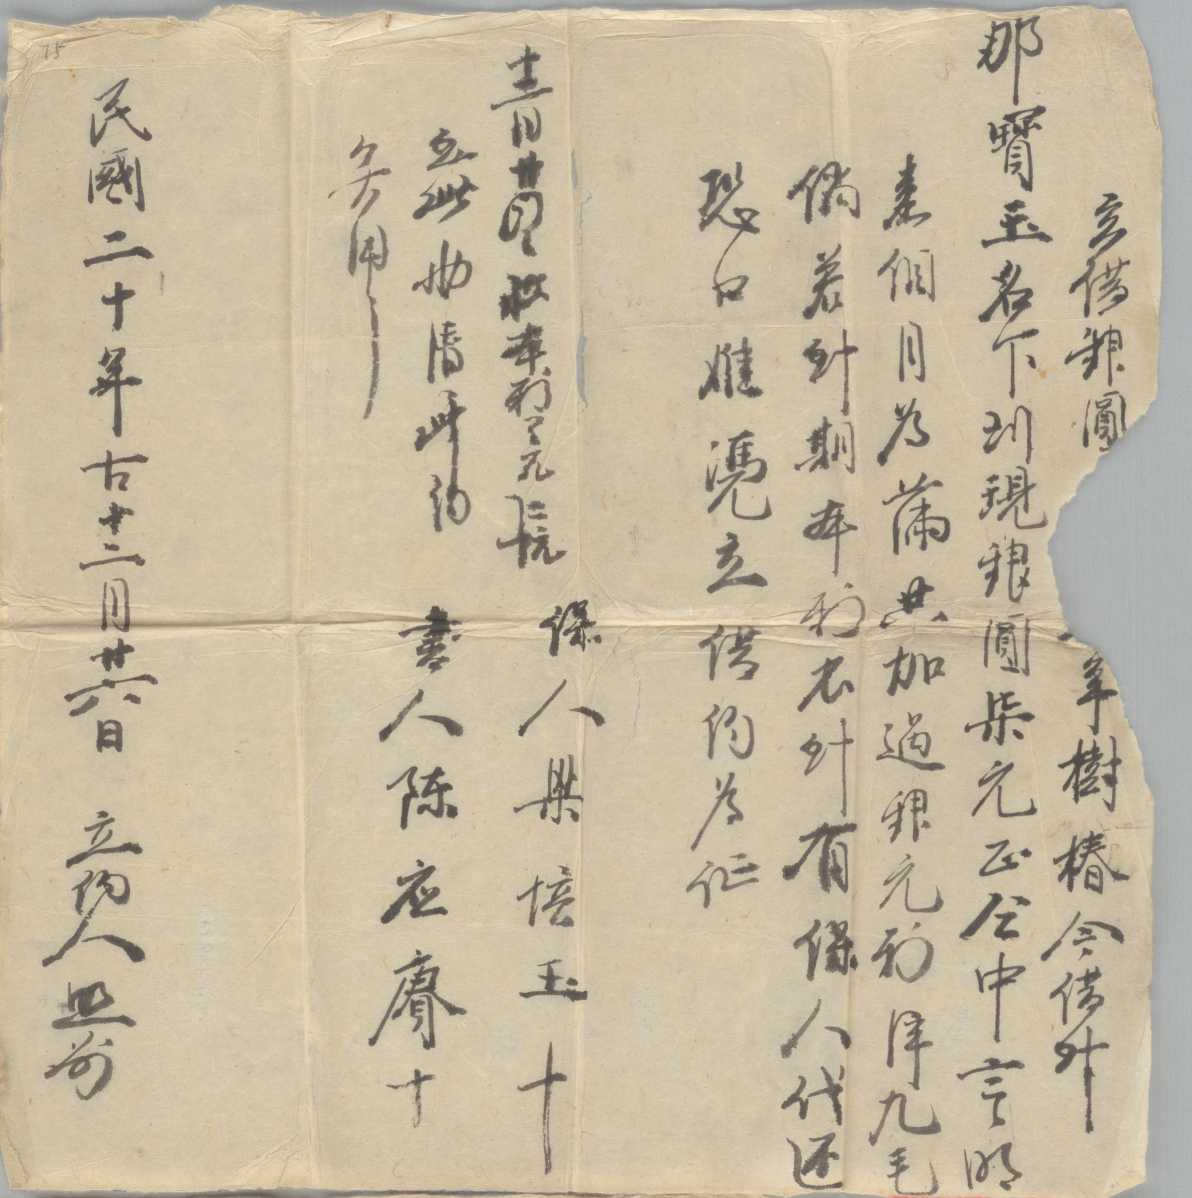 立借銀圓 辛樹椿今借到
那寶玉名下現銀圓柒元正公中言明
個月為滿共加過銀元利洋九毛
倘若到期本利不到有保人代还
恐口難憑立借約為证
保人梁培玉十
十二月廿四日收本利
立此 清此约
无用
書人陈应賡十
民國二十年古十二月廿六日 立约人照前
15